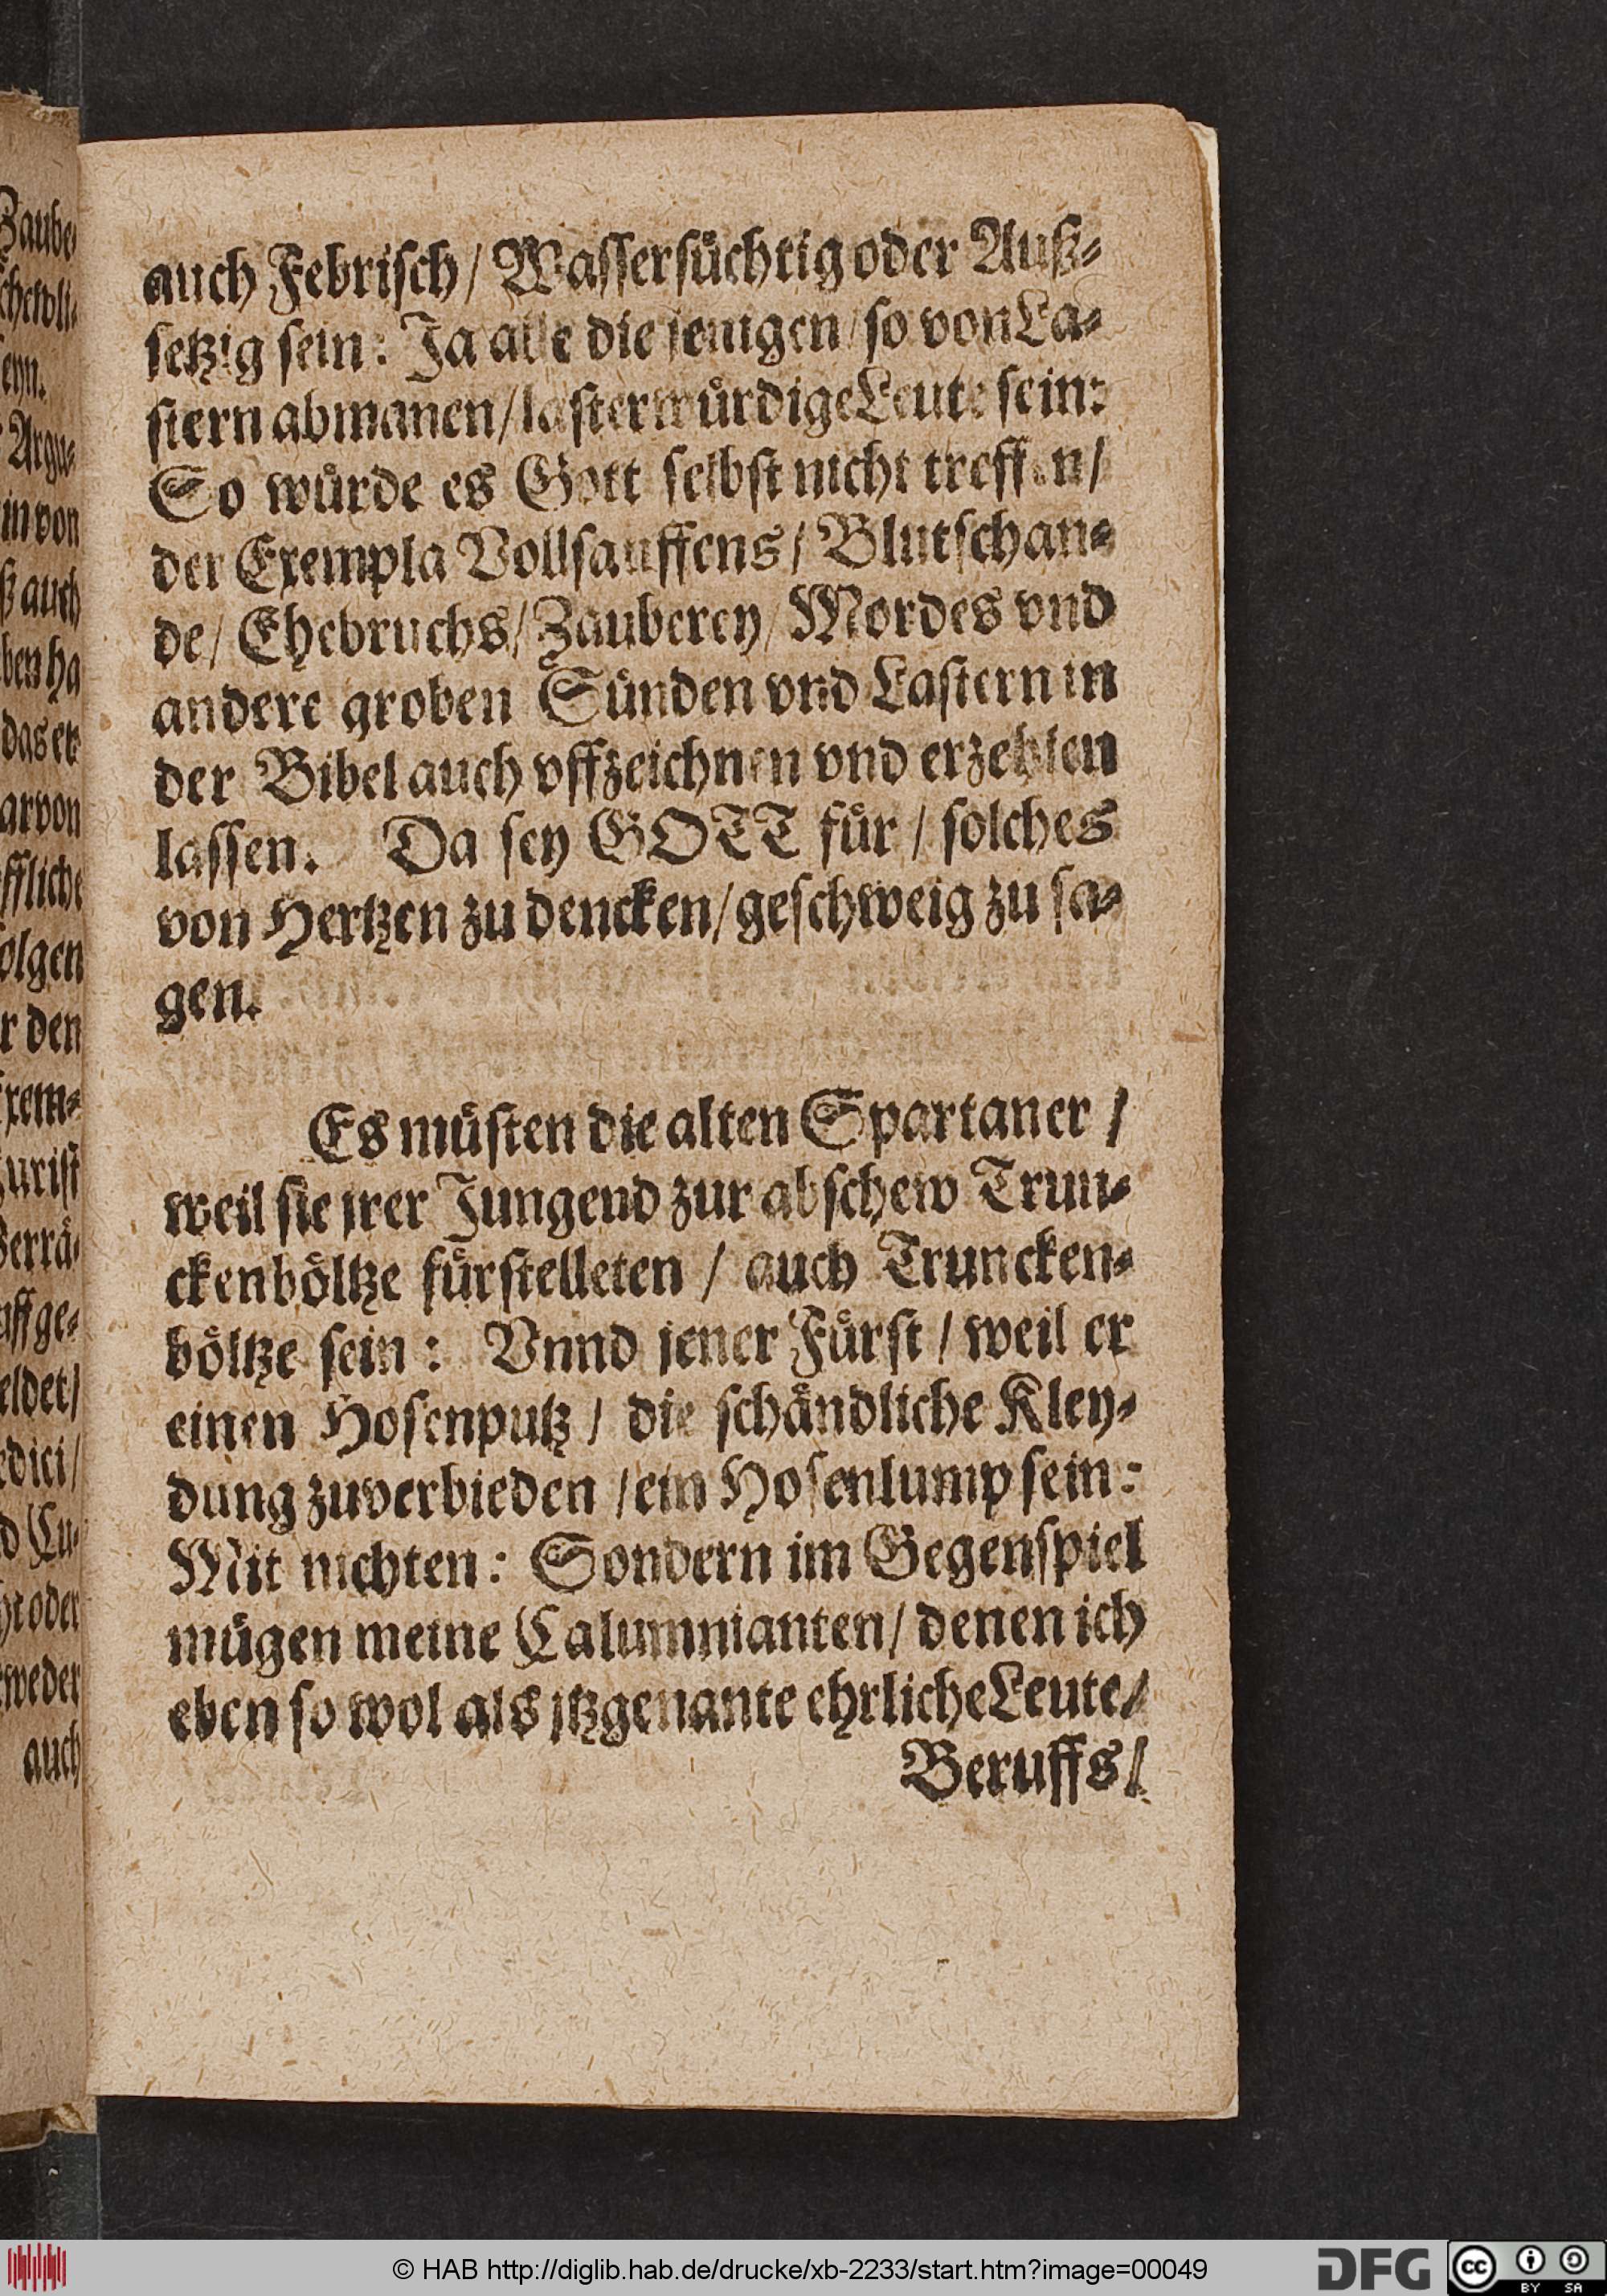 auch Febrisch / Wassersüchtig oder Auß-
setzig sein: Ja alle die jenigen / so von La-
stern abmanen / lasterwürdige Leute sein:
So würde es Gott selbst nicht treffen /
der Exempla Vollsauffens / Blutschan-
de / Ehebruchs / Zauberey / Mordes vnd
andere groben Sünden vnd Lastern in
der Bibel auch vffzeichnen vnd erzehlen
lassen. Da sey GOTT für / solches
von Hertzen zu dencken / geschweig zu sa-
gen.
Es müsten die alten Spartaner /
weil sie jrer Jungend zur abschew Trun-
ckenböltze fürstelleten / auch Truncken-
böltze sein: Vnnd jener Fürst / weil er
einen Hosenputz / die schändliche Kley-
dung zuverbieden / ein Hosenlump sein:
Mit nichten: Sondern im Gegenspiel
mügen meine Calumnianten / denen ich
eben so wol als jtzgenante ehrliche Leute /
Beruffs /
© HAB http://diglib.hab.de/drucke/xb-2233/start.htm?image=00049
DFG
cc BY SA